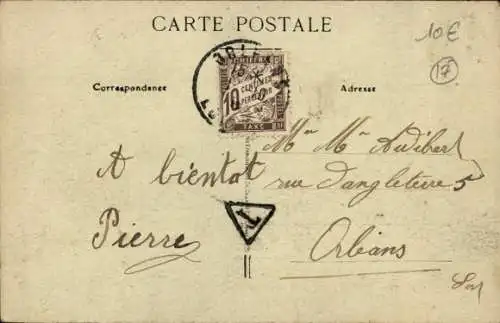 CARTE POSTALE
10€
17
Correspondance
Adresse
ORLE
10
CENTIMES
A PERCEVOIR
TAXE
A bientôt
Pierre
T
Mr Me Audibert
rue d'angleterre 5
Orléans